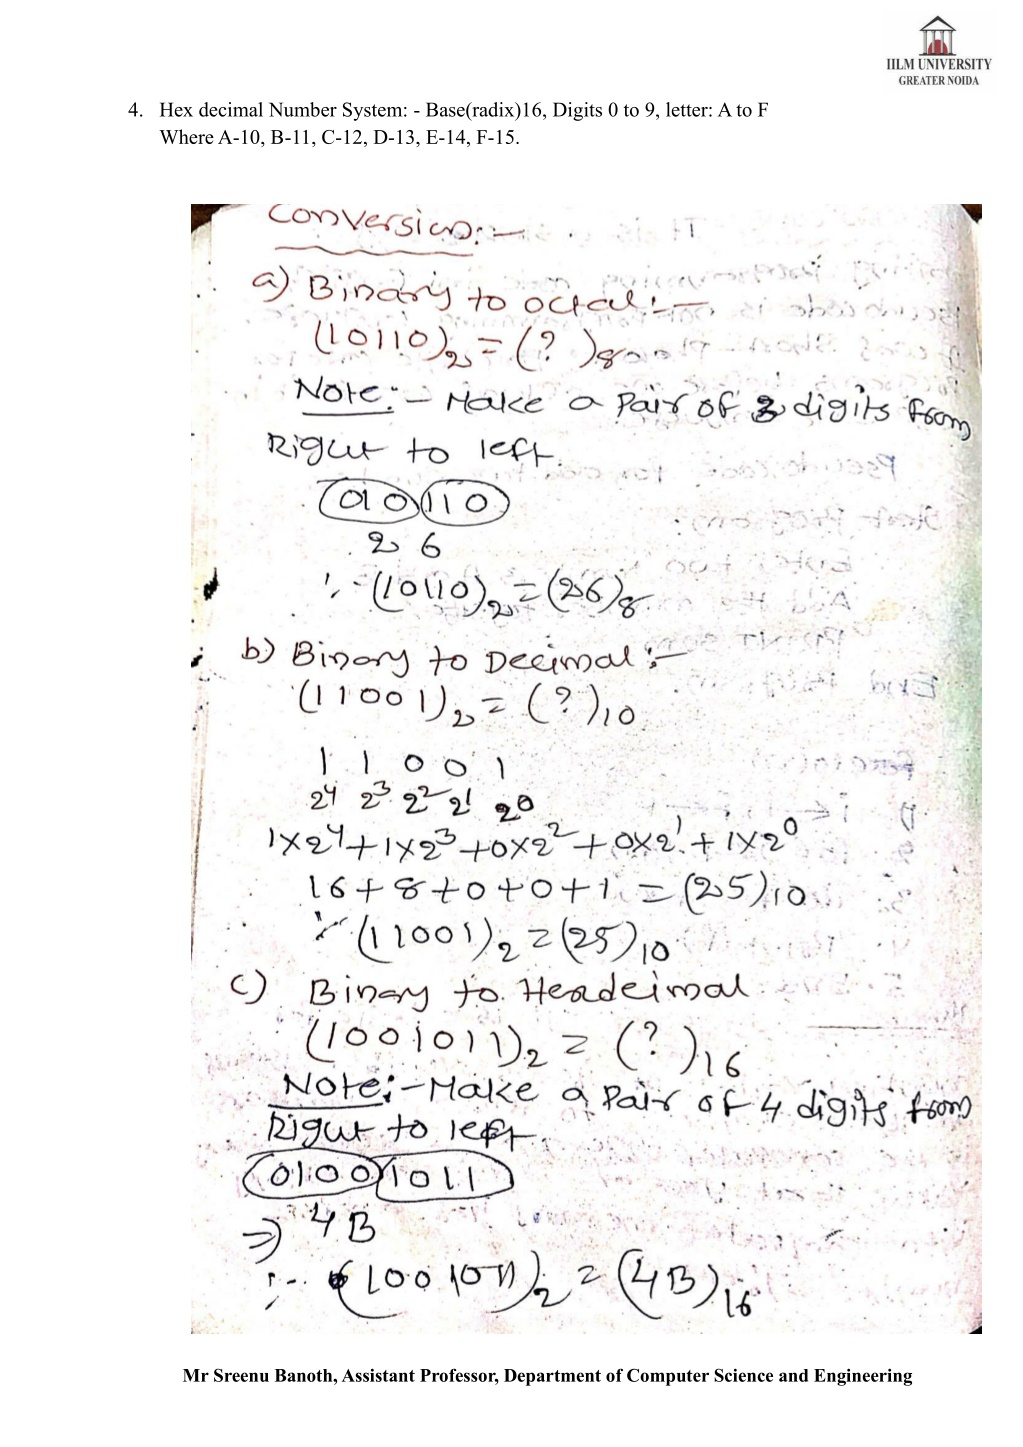 IILM UNIVERSITY
GREATER NOIDA
4. Hex decimal Number System: - Base(radix)16, Digits 0 to 9, letter: A to F
Where A-10, B-11, C-12, D-13, E-14, F-15.
Conversion:-
a) Binary to octal:-
(10110)₂ = (? )₈
Note:- Make a Pair of 3 digits from
Right to left.
010110
2 6
∵ -(10110)₂ = (26)₈
b) Binary to Decimal:-
(11001)₂ = (?)₁₀
1 1 0 0 1
2⁴ 2³ 2² 2¹ 2⁰
1×2⁴+1×2³+0×2²+0×2¹+1×2⁰
16+8+0+0+1 = (25)₁₀
∵ (11001)₂ = (25)₁₀
c) Binary to Hexdeimal
(1001011)₂ = (? )₁₆
Note:- Make a Pair of 4 digits from
Right to left.
01001011
⇒ 4B
∵ (1001011)₂ = (4B)₁₆
Mr Sreenu Banoth, Assistant Professor, Department of Computer Science and Engineering